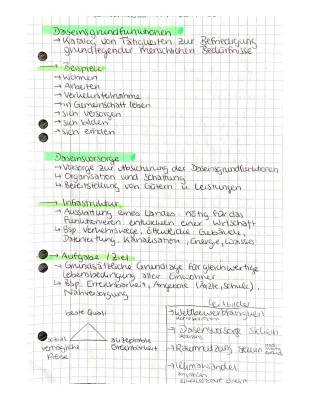 Daseinsgrundfunktionen
→ Katalog von Tätigkeiten zur Befriedigung
grundlegender menschlichen Bedürfnisse
→ Beispiele
→ Wohnen
→ Arbeiten
→ Verkehrsteilnahme
→ in Gemeinschaft leben
→ sich versorgen
→ sich bilden
→ sich erholen
Daseinsvorsorge
→ Vorsorge zur Absicherung der Daseinsgrundfunktionen
↳ Organisation und Schaffung
↳ Bereitstellung von Gütern u. Leistungen
→ Infrastruktur
→ Ausstattung eines Landes nötig für das
Funktionieren einer Wirtschaft
↳ Bsp. Verkehrswege, öffentliche Gebäude,
Datenleitung, Kanalisation, Energie, Wasser
→ Aufgabe / Ziel
↳ Grundsätzliche Grundlage für gleichwertige
Lebensbedingung aller Einwohner
↳ Bsp. Erreichbarkeit, Angebote (Ärzte, Schule),
Nahversorgung
beste Qualität
sozial verträgliche Preise
akzeptable Erreichbarkeit
Leitbilder
→ Wettbewerbsfähigkeit
→ Daseinsvorsorge sichern
→ Raumnutzung
→ Klimawandel